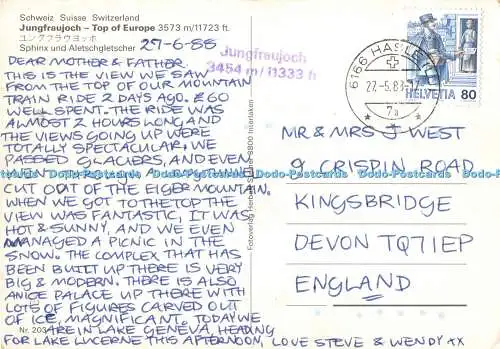 Schweiz Suisse Switzerland
Jungfraujoch – Top of Europe 3573 m/11723 ft.
ユングフラウヨッホ
Sphinx und Aletschgletscher
27-6-88
Jungfraujoch
3454 m / 11333 ft
6166 HASLE
27.-5.88
7a
HELVETIA 80
DEAR MOTHER & FATHER.
THIS IS THE VIEW WE SAW
FROM THE TOP OF OUR MOUNTAIN
TRAIN RIDE 2 DAYS AGO. £60
WELL SPENT. THE RIDE WAS
ALMOST 2 HOURS LONG AND
THE VIEWS GOING UP WERE
TOTALLY SPECTACULAR, WE
PASSED GLACIERS, AND EVEN
CUT OUT OF THE EIGER MOUNTAIN.
WHEN WE GOT TO THE TOP THE
VIEW WAS FANTASTIC, IT WAS
HOT & SUNNY, AND WE EVEN
MANAGED A PICNIC IN THE
SNOW. THE COMPLEX THAT HAS
BEEN BUILT UP THERE IS VERY
BIG & MODERN. THERE IS ALSO
A NICE PALACE UP THERE WITH
LOTS OF FIGURES CARVED OUT
OF ICE, MAGNIFICANT. TODAY WE
ARE IN LAKE GENEVA, HEADING
FOR LAKE LUCERNE THIS AFTERNOON, LOVE STEVE & WENDY XX
Nr. 203
MR & MRS J WEST
9 CRISPIN ROAD
KINGSBRIDGE
DEVON TQ71EP
ENGLAND
Dodo-Postcards